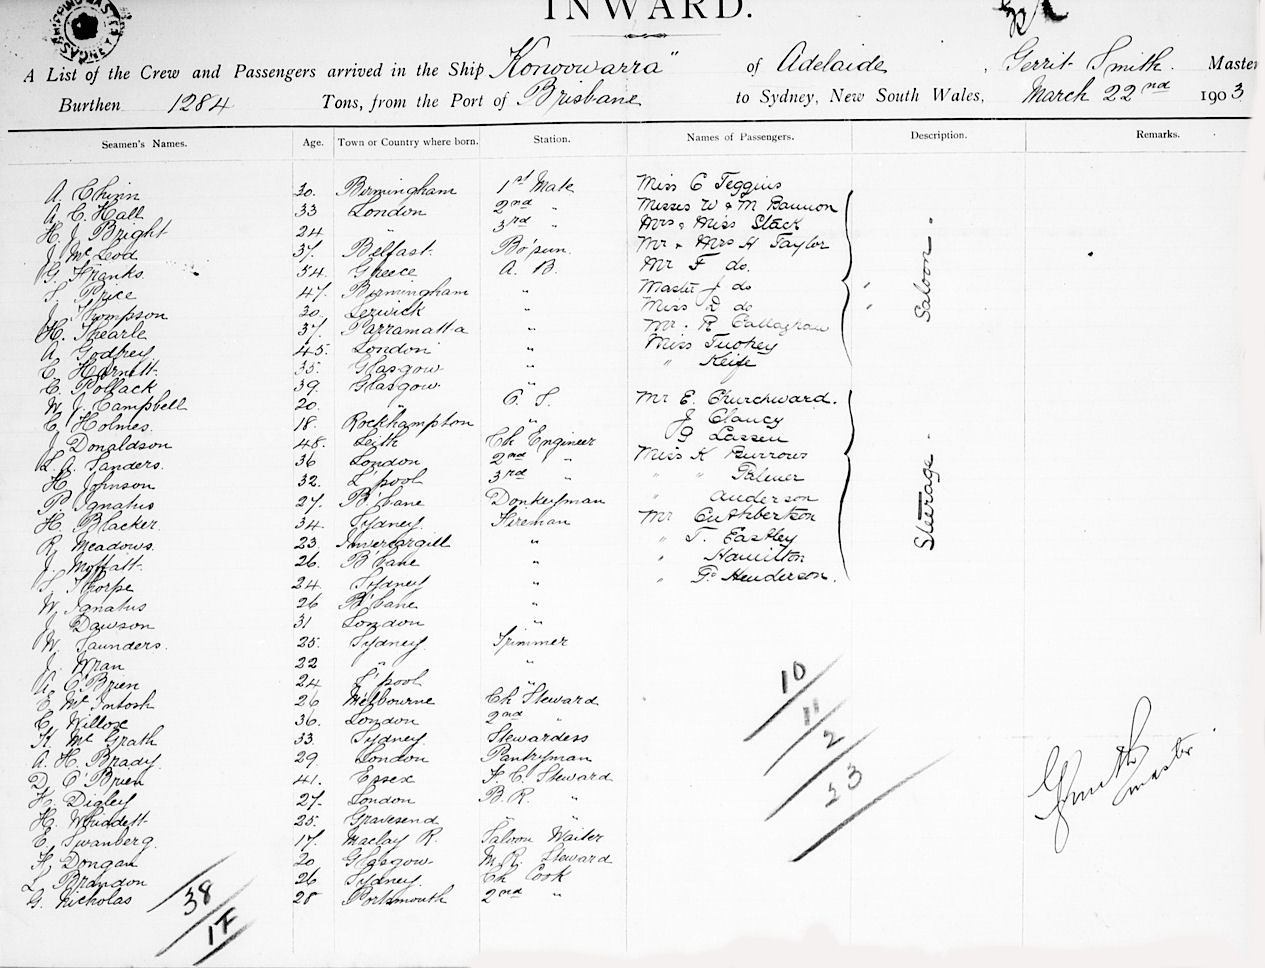 INWARD.
A List of the Crew and Passengers arrived in the Ship "Konoowarra" of Adelaide, Gerrit Smith Master
Burthen 1284 Tons, from the Port of Brisbane to Sydney, New South Wales, March 22nd 1903
Seamen's Names. Age. Town or Country where born. Station. Names of Passengers. Description. Remarks.
A. 30. Birmingham 1st Mate Miss C Teggins
A. E. Hall 33 London 2nd " Misses W & M Bannon
H. J. Bright 24 " 3rd " Mrs & Miss Stack
J. McLeod 37. Belfast. Bo'sun. Mr & Mrs H Taylor
G. Franks. 54. Greece A. B. Mr F do.
Price 47. Birmingham " Master J do "
J. Thompson 30. Lerwick " Miss D do "
H. Shearle 37 Parramatta " Mr. R Callaghan
A. Godfrey 45. London " Miss Tuohey
C. Harnett. 35. Glasgow " " Keife
Saloon.
C. Pollack 39. Glasgow "
W. J. Campbell 20. " O. S. Mr E. Churchward.
C. Holmes. 18. Rockhampton " J Clancy
J. Donaldson 48. Leith Ch Engineer G Lassen
L. A. Sanders. 36 London 2nd " Miss K Burrows
H. Johnson 32. L'pool 3rd " " " Palmer
P. Ignatus 27. B'bane Donkeyman " Anderson
H. Blacker. 34. Sydney Fireman Mr Cuthbertson
R. Meadows. 23. Invercargill " " T. Eastley
J. Moffatt. 26. B'bane " " Hamilton
Thorpe 24. Sydney " " P. Henderson.
Steerage.
W. Ignatus 26 B'bane "
J. Dawson 31 London "
W. Saunders. 25. Sydney Trimmer
J. Wran 22 " "
A. O'Brien 24 L'pool "
E. McIntosh 26 Melbourne Ch Steward
C. Willox 36. London 2nd "
K. McGrath 33. Sydney Stewardess
A. H. Brady. 29. London Pantryman
D. O'Brien 41. Essex F. C. Steward
H. Digley 27. London B. R. "
H. Whiddett 25. Gravesend "
E. Swanberg. 17. Maclay R. Saloon Waiter
H. Dongan 20 Glasgow M. R. Steward
L. Brandon 26 Sydney. Ch Cook
G. Nicholas 28 Portsmouth 2nd "
10
11
2
23
38
1F
G Smith
master